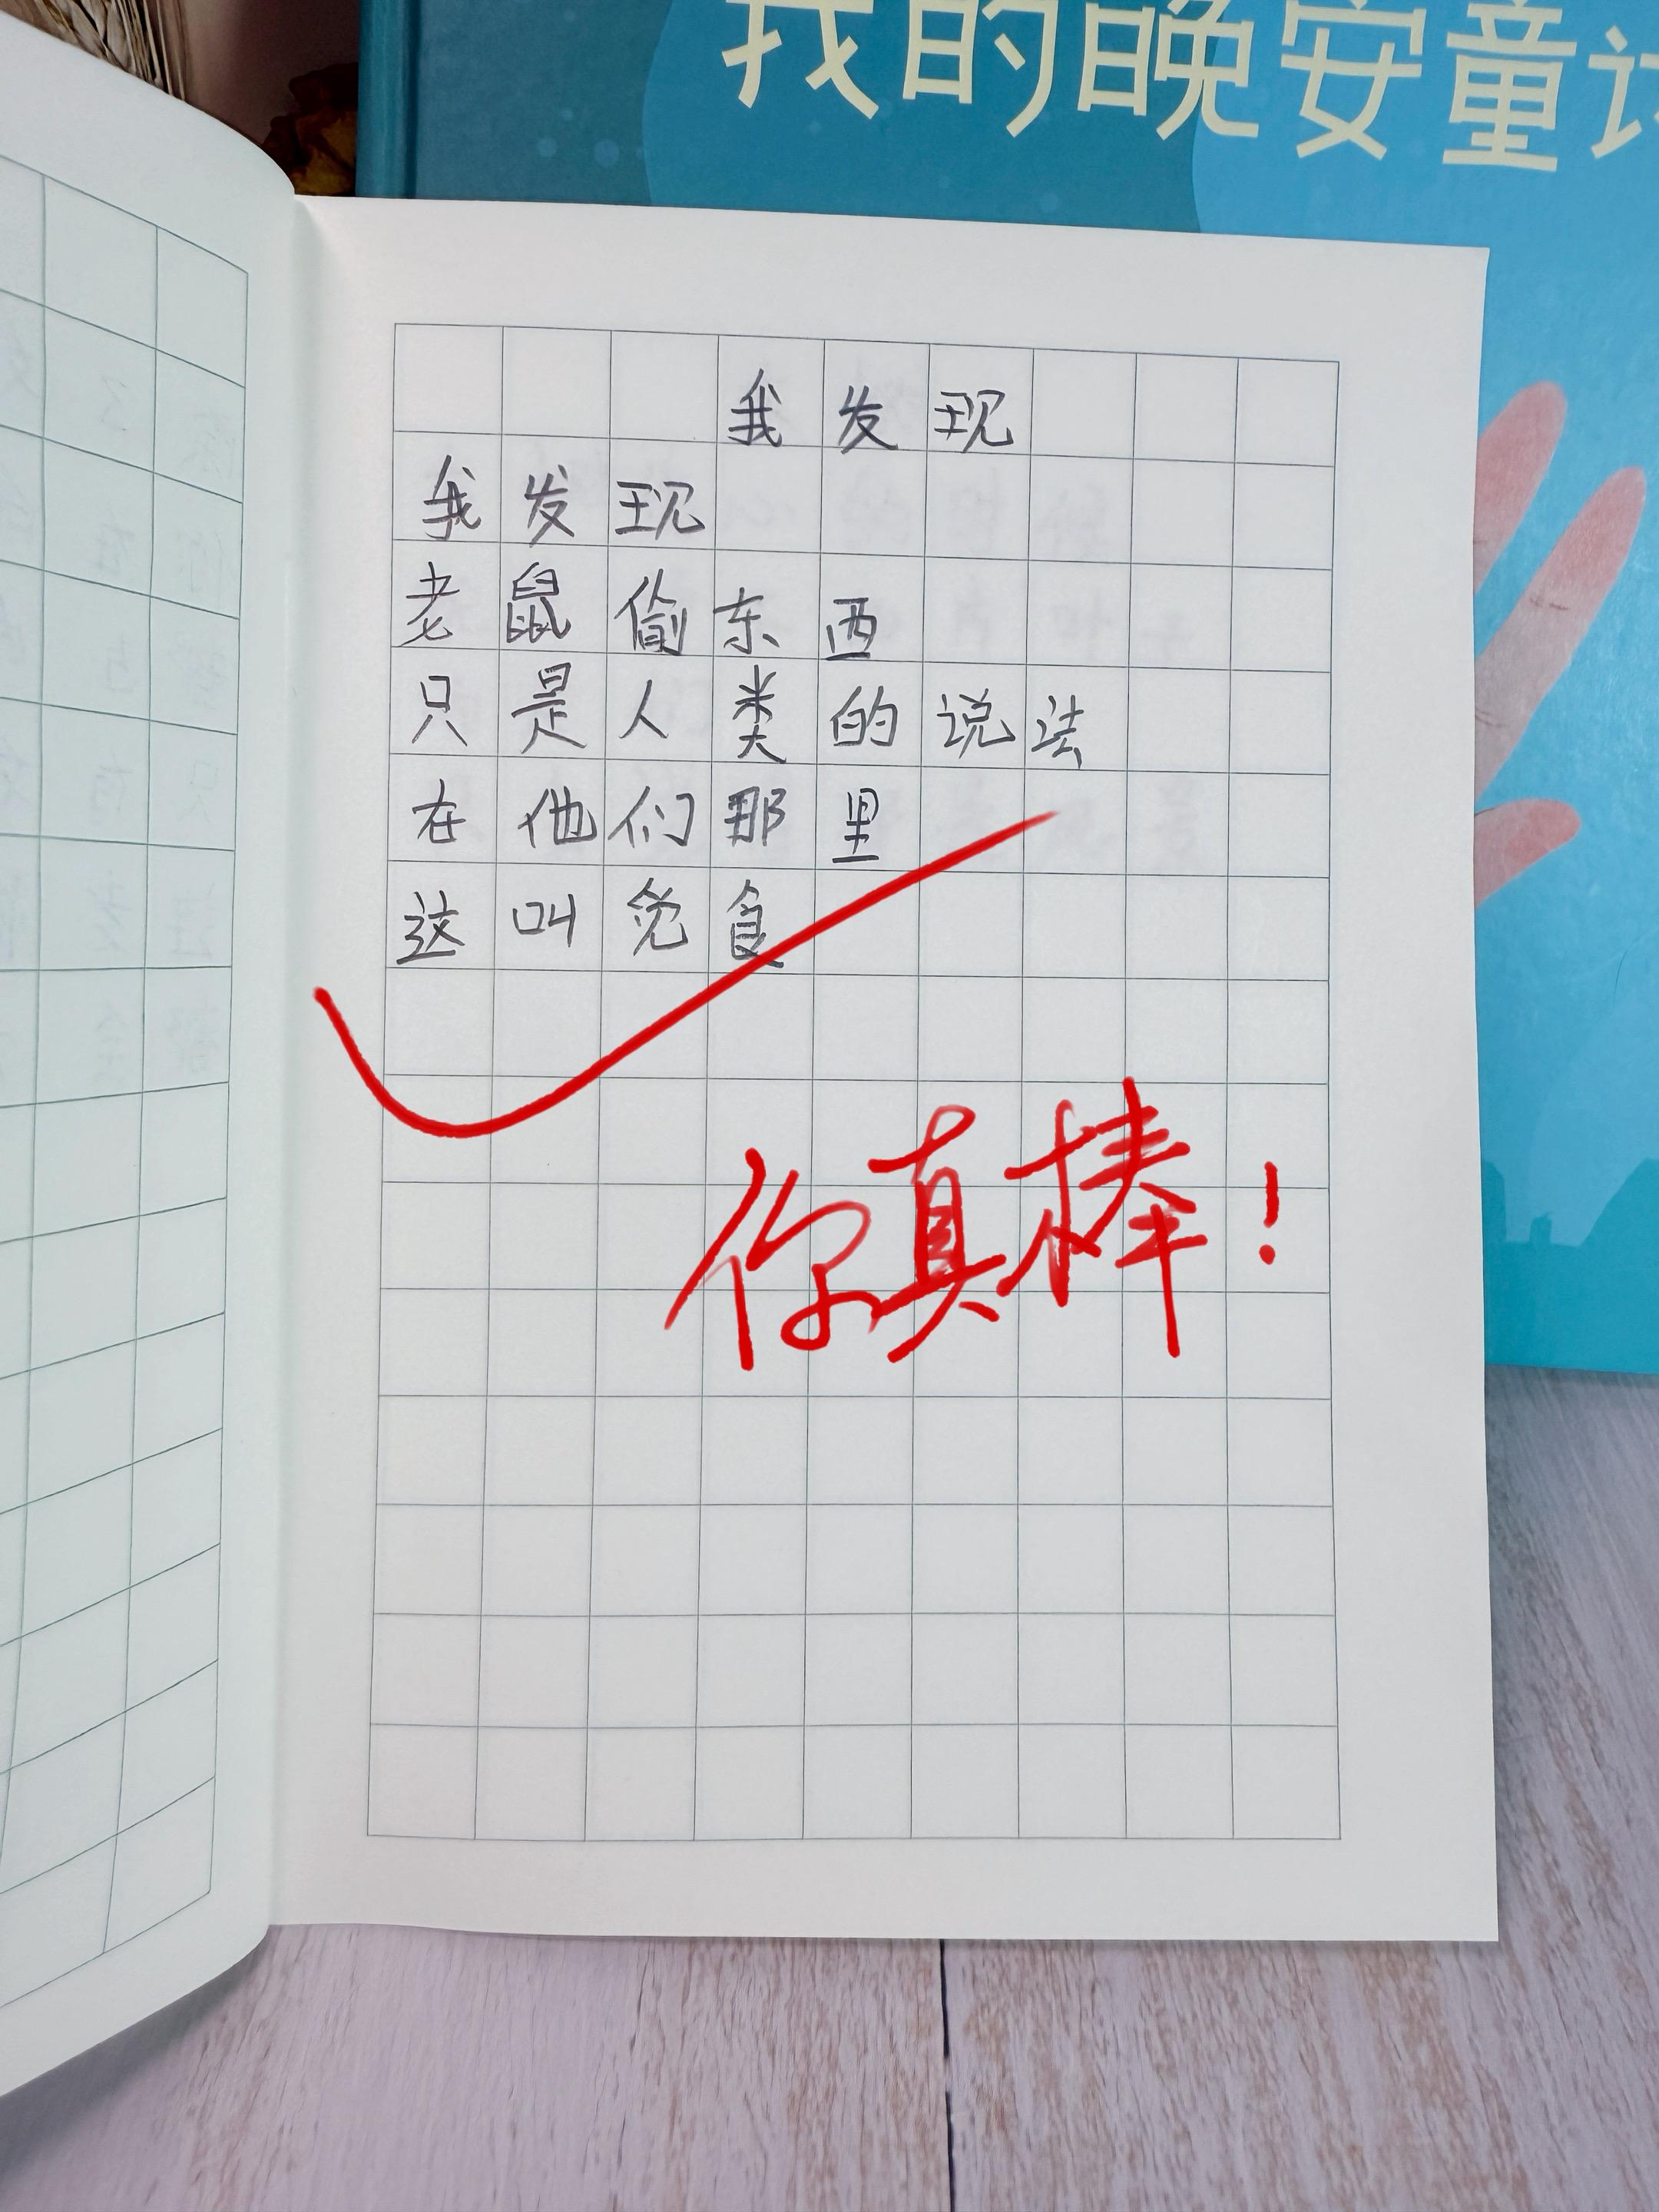 我的晚安童
我发现
我发现
老鼠偷东西
只是人类的说法
在他们那里
这叫觅食
你真棒!